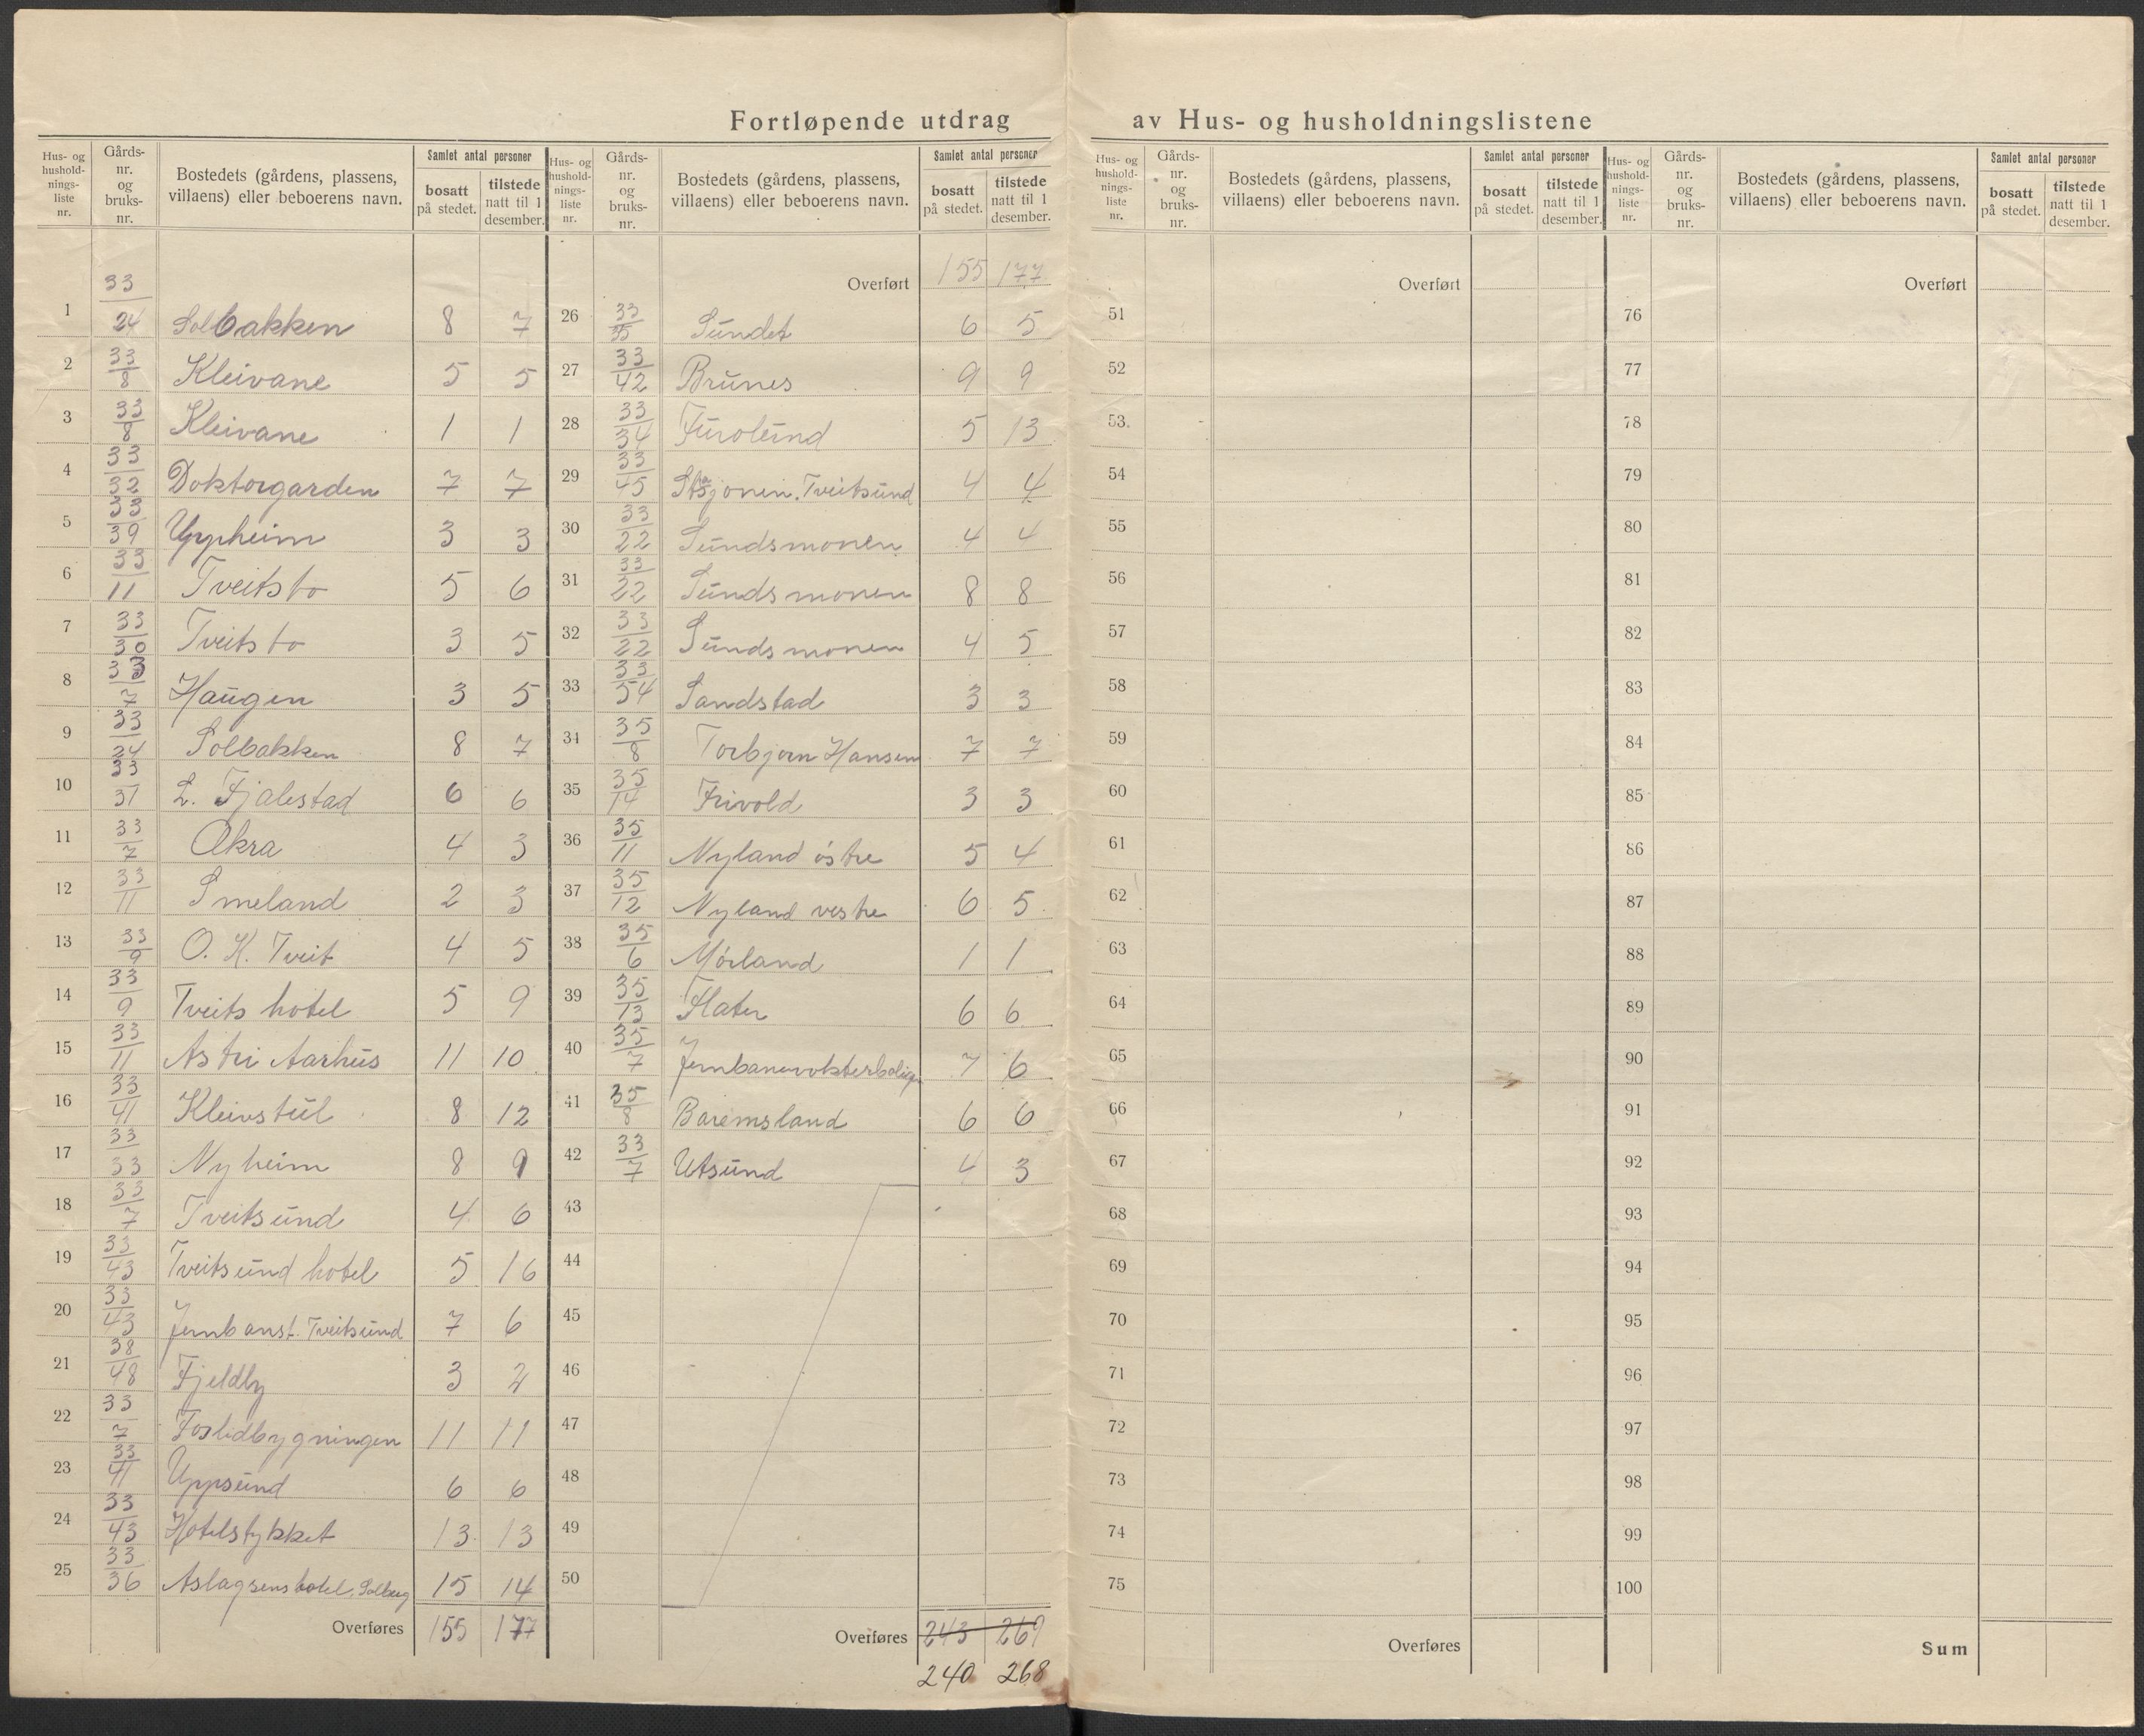 Fortløpende utdrag av Hus- og husholdningslistene
Hus- og hushold-nings-liste nr. | Gårds-nr. og bruks-nr. | Bostedets (gårdens, plassens, villaens) eller beboerens navn. | Samlet antal personer: bosatt på stedet. | tilstede natt til 1 desember.
1 33/24 Solbakken 8 7
2 33/8 Kleivane 5 5
3 33/8 Kleivane 1 1
4 33/32 Doktorgarden 7 7
5 33/39 Uppheim 3 3
6 33/11 Tveitsto 5 6
7 33/30 Tveitsto 3 5
8 33/7 Haugen 3 5
9 33/24 Solbakken 8 7
10 33/37 L. Fjalestad 6 6
11 33/7 Akra 4 3
12 33/11 Smeland 2 3
13 33/9 O. K. Tveit 4 5
14 33/9 Tveits hotel 5 9
15 33/11 Astri Aarhus 11 10
16 33/41 Kleivstul 8 12
17 33/33 Nyheim 8 9
18 33/7 Tveitsund 4 6
19 33/43 Tveitsund hotel 5 16
20 33/43 Jernbanst. Tveitsund 7 6
21 38/48 Fjeldby 3 2
22 33/7 Foslidbygningen 11 11
23 33/41 Uppsund 6 6
24 33/43 Hotelstykket 13 13
25 33/36 Aslagsens hotel, Solberg 15 14
Overføres 155 177
Hus- og hushold-nings-liste nr. | Gårds-nr. og bruks-nr. | Bostedets (gårdens, plassens, villaens) eller beboerens navn. | Samlet antal personer: bosatt på stedet. | tilstede natt til 1 desember.
Overført 155 177
26 33/35 Sundet 6 5
27 33/42 Brunes 9 9
28 33/34 Furolund 5 13
29 33/45 Stasjonen. Tveitsund 4 4
30 33/22 Sundsmonen 4 4
31 33/22 Sundsmonen 8 8
32 33/22 Sundsmonen 4 5
33 33/54 Sandstad 3 3
34 35/8 Torbjørn Hansen 7 7
35 35/14 Frivold 3 3
36 35/11 Nyland østre 5 4
37 35/12 Nyland vestre 6 5
38 35/6 Mørland 1 1
39 35/13 Flaten 6 6
40 35/7 Jernbanevokterbolign 7 6
41 35/8 Baremsland 6 6
42 33/7 Utsund 4 3
43
44
45
46
47
48
49
50
Overføres 243 269
240 268
Hus- og hushold-nings-liste nr. | Gårds-nr. og bruks-nr. | Bostedets (gårdens, plassens, villaens) eller beboerens navn. | Samlet antal personer: bosatt på stedet. | tilstede natt til 1 desember.
Overført
51
52
53.
54
55
56
57
58
59
60
61
62
63
64
65
66
67
68
69
70
71
72
73
74
75
Overføres
Hus- og hushold-nings-liste nr. | Gårds-nr. og bruks-nr. | Bostedets (gårdens, plassens, villaens) eller beboerens navn. | Samlet antal personer: bosatt på stedet. | tilstede natt til 1 desember.
Overført
76
77
78
79
80
81
82
83
84
85
86
87
88
89
90
91
92
93
94
95
96
97
98
99
100
Sum